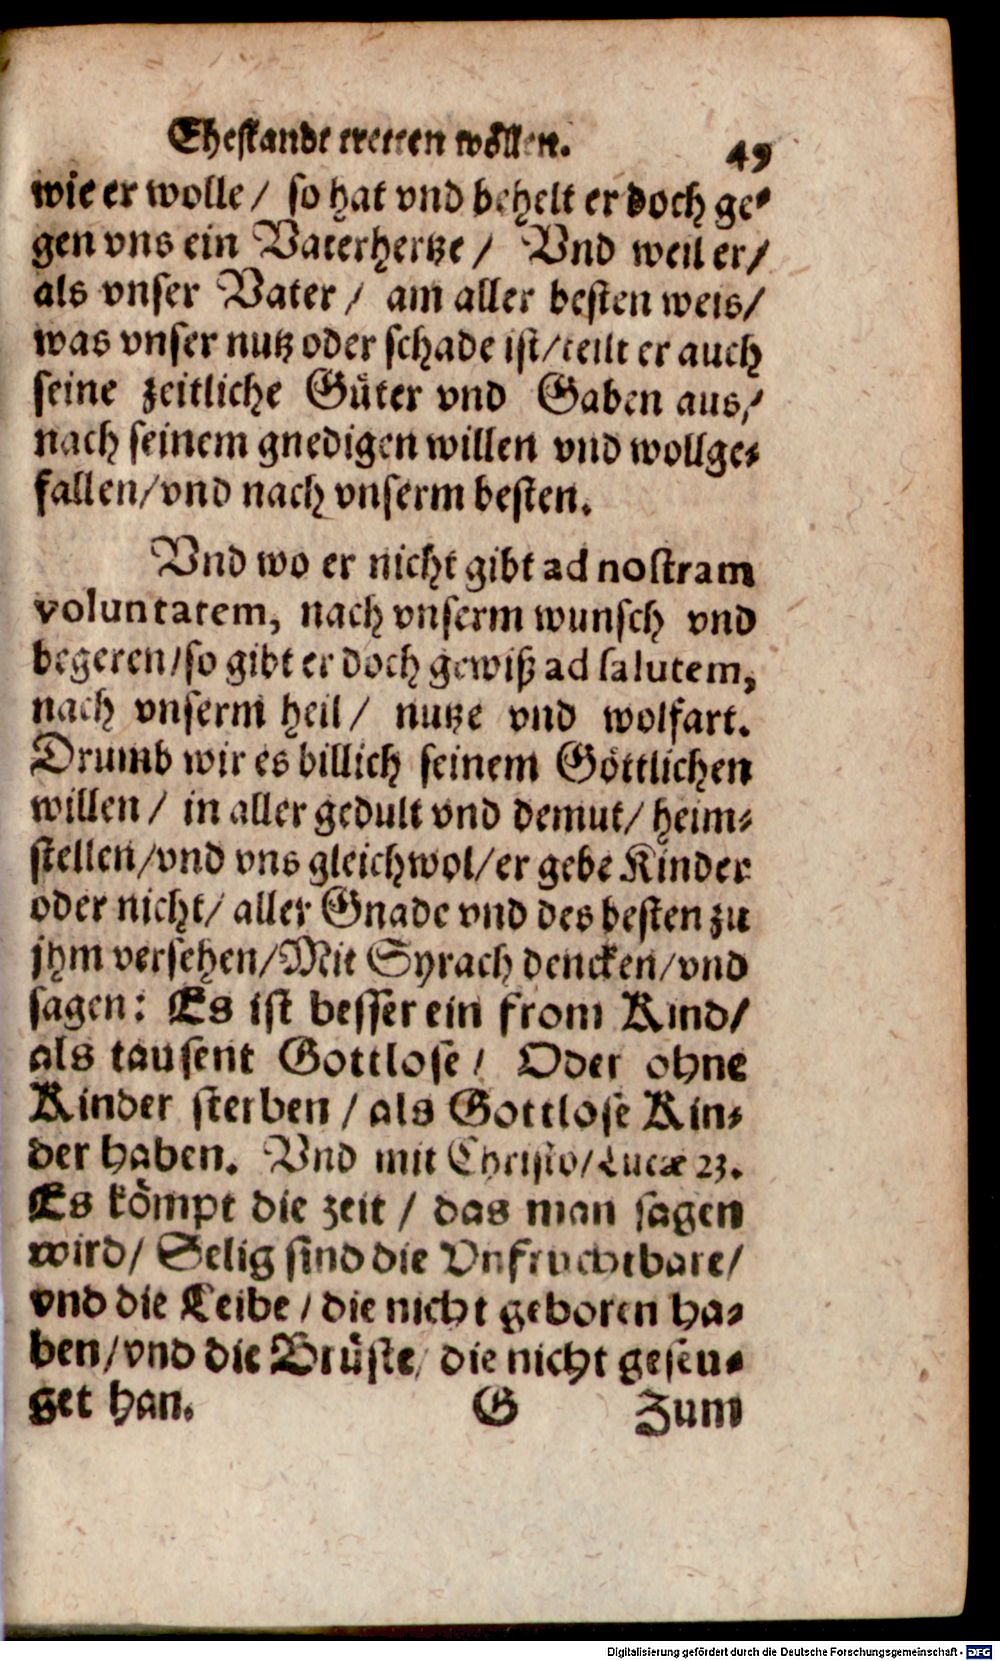 Ehestande tretten wöllen. 49
wie er wolle / so hat vnd behelt er doch ge-
gen vns ein Vaterhertze / Vnd weil er /
als vnser Vater / am aller besten weis /
was vnser nutz oder schade ist / teilt er auch
seine zeitliche Güter vnd Gaben aus /
nach seinem gnedigen willen vnd wollge-
fallen / vnd nach vnserm besten.
Vnd wo er nicht gibt ad nostram
voluntatem, nach vnserm wunsch vnd
begeren / so gibt er doch gewiß ad salutem,
nach vnserm heil / nutze vnd wolfart.
Drumb wir es billich seinem Göttlichen
willen / in aller gedult vnd demut / heim-
stellen / vnd vns gleichwol / er gebe Kinder
oder nicht / aller Gnade vnd des besten zu
jhm versehen / Mit Syrach dencken / vnd
sagen: Es ist besser ein from Kind /
als tausent Gottlose / Oder ohne
Kinder sterben / als Gottlose Kin-
der haben. Vnd mit Christo / Lucæ 23.
Es kömpt die zeit / das man sagen
wird / Selig sind die Vnfruchtbare /
vnd die Leibe / die nicht geboren ha-
ben / vnd die Brüste / die nicht geseu-
get han. G Zum
Digitalisierung gefördert durch die Deutsche Forschungsgemeinschaft - DFG